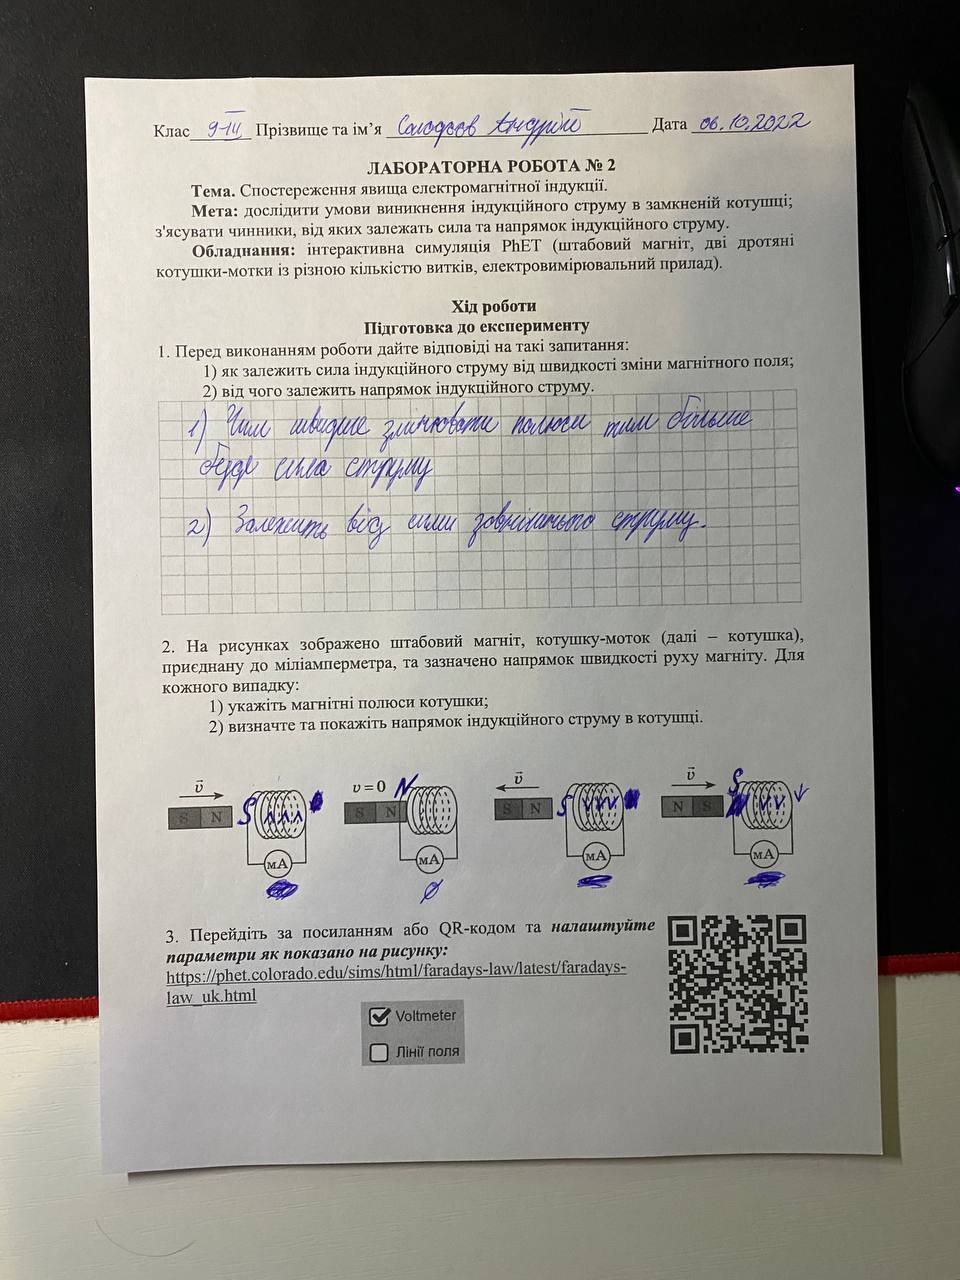 Клас 9-ІІІ Прізвище та ім’я Андрій Дата 06.10.2022
ЛАБОРАТОРНА РОБОТА № 2
Тема. Спостереження явища електромагнітної індукції.
Мета: дослідити умови виникнення індукційного струму в замкненій котушці;
з'ясувати чинники, від яких залежать сила та напрямок індукційного струму.
Обладнання: інтерактивна симуляція PhET (штабовий магніт, дві дротяні
котушки-мотки із різною кількістю витків, електровимірювальний прилад).
Хід роботи
Підготовка до експерименту
1. Перед виконанням роботи дайте відповіді на такі запитання:
1) як залежить сила індукційного струму від швидкості зміни магнітного поля;
2) від чого залежить напрямок індукційного струму.
1) Чим швидше змінювати полюси тим більше
буде сила струму
2) Залежить від сили зовнішнього струму.
2. На рисунках зображено штабовий магніт, котушку-моток (далі – котушка),
приєднану до міліамперметра, та зазначено напрямок швидкості руху магніту. Для
кожного випадку:
1) укажіть магнітні полюси котушки;
2) визначте та покажіть напрямок індукційного струму в котушці.
v υ = 0 N v v S
S N S S N S N S N S
мА мА мА мА
3. Перейдіть за посиланням або QR-кодом та налаштуйте
параметри як показано на рисунку:
https://phet.colorado.edu/sims/html/faradays-law/latest/faradays-
law_uk.html
Voltmeter
Лінії поля